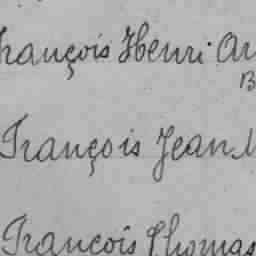 François Henri
François Jean
François Thomas